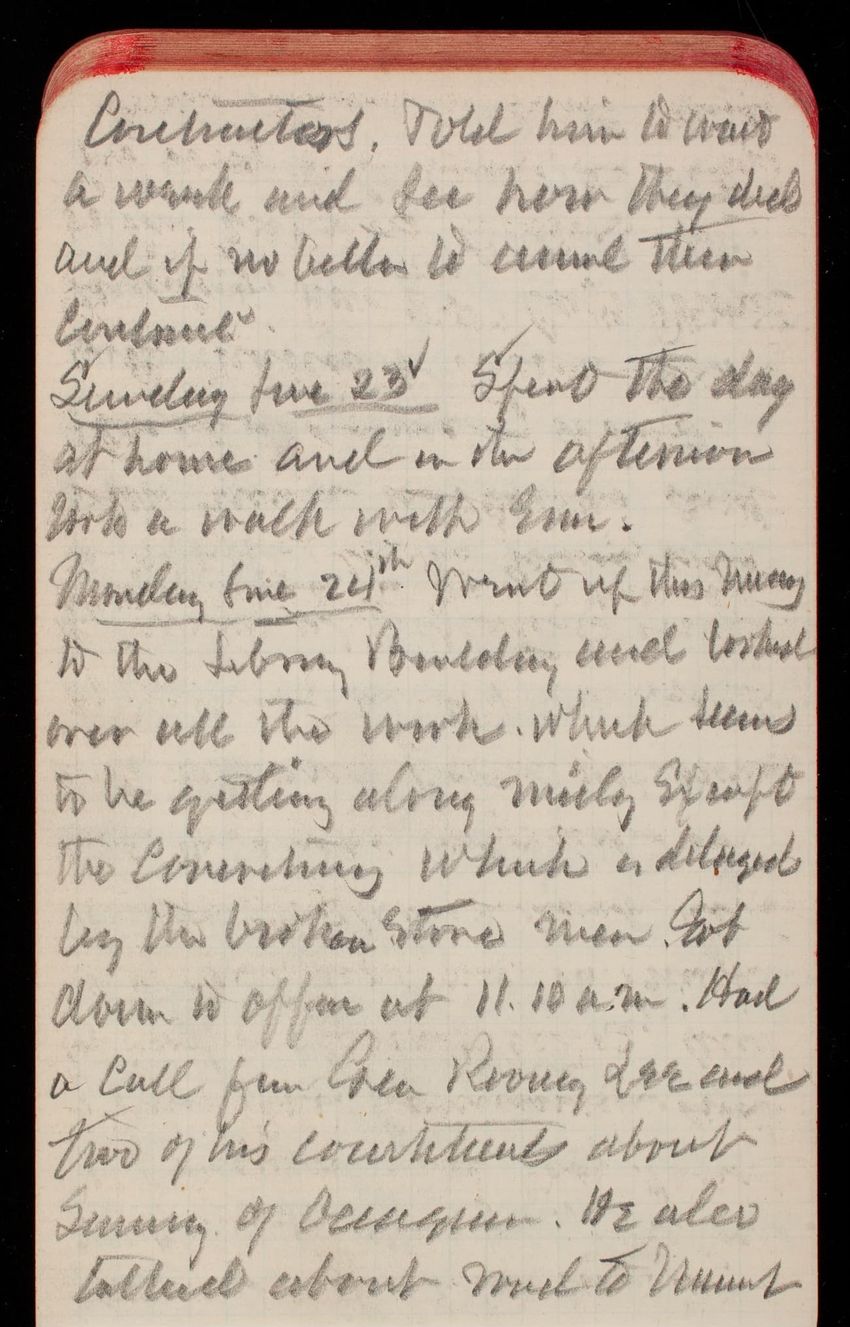 Contractors. Told him to wait
a week and see how they did
and if no better to annul their
Contract.
Sunday June 23 Spent the day
at home and in the afternoon
took a walk with Em.
Monday June 24th Went up this morng
to the Library Building and looked
over all the work. which seems
to be getting along nicely Except
the Concreting which is delayed
by the broken stone men. Got
down to office at 11.10 a.m. Had
a call from Rooney Lee and
two of his constituents about
Survey of Occoquan. He also
talked about road to Mount